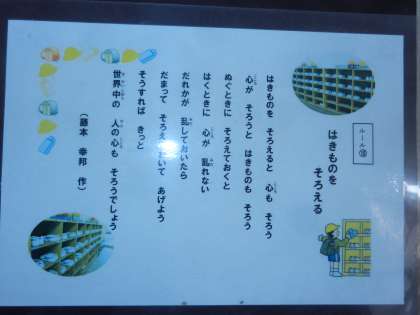 ルール⑱
はきものを
そろえる
はきものを そろえると 心も そろう
心が そろうと はきものも そろう
ぬぐときに そろえておくと
はくときに 心が 乱れない
だれかが 乱しておいたら
だまって そろえておいて あげよう
そうすれば きっと
世界中の 人の心も そろうでしょう
(藤本 幸邦 作)